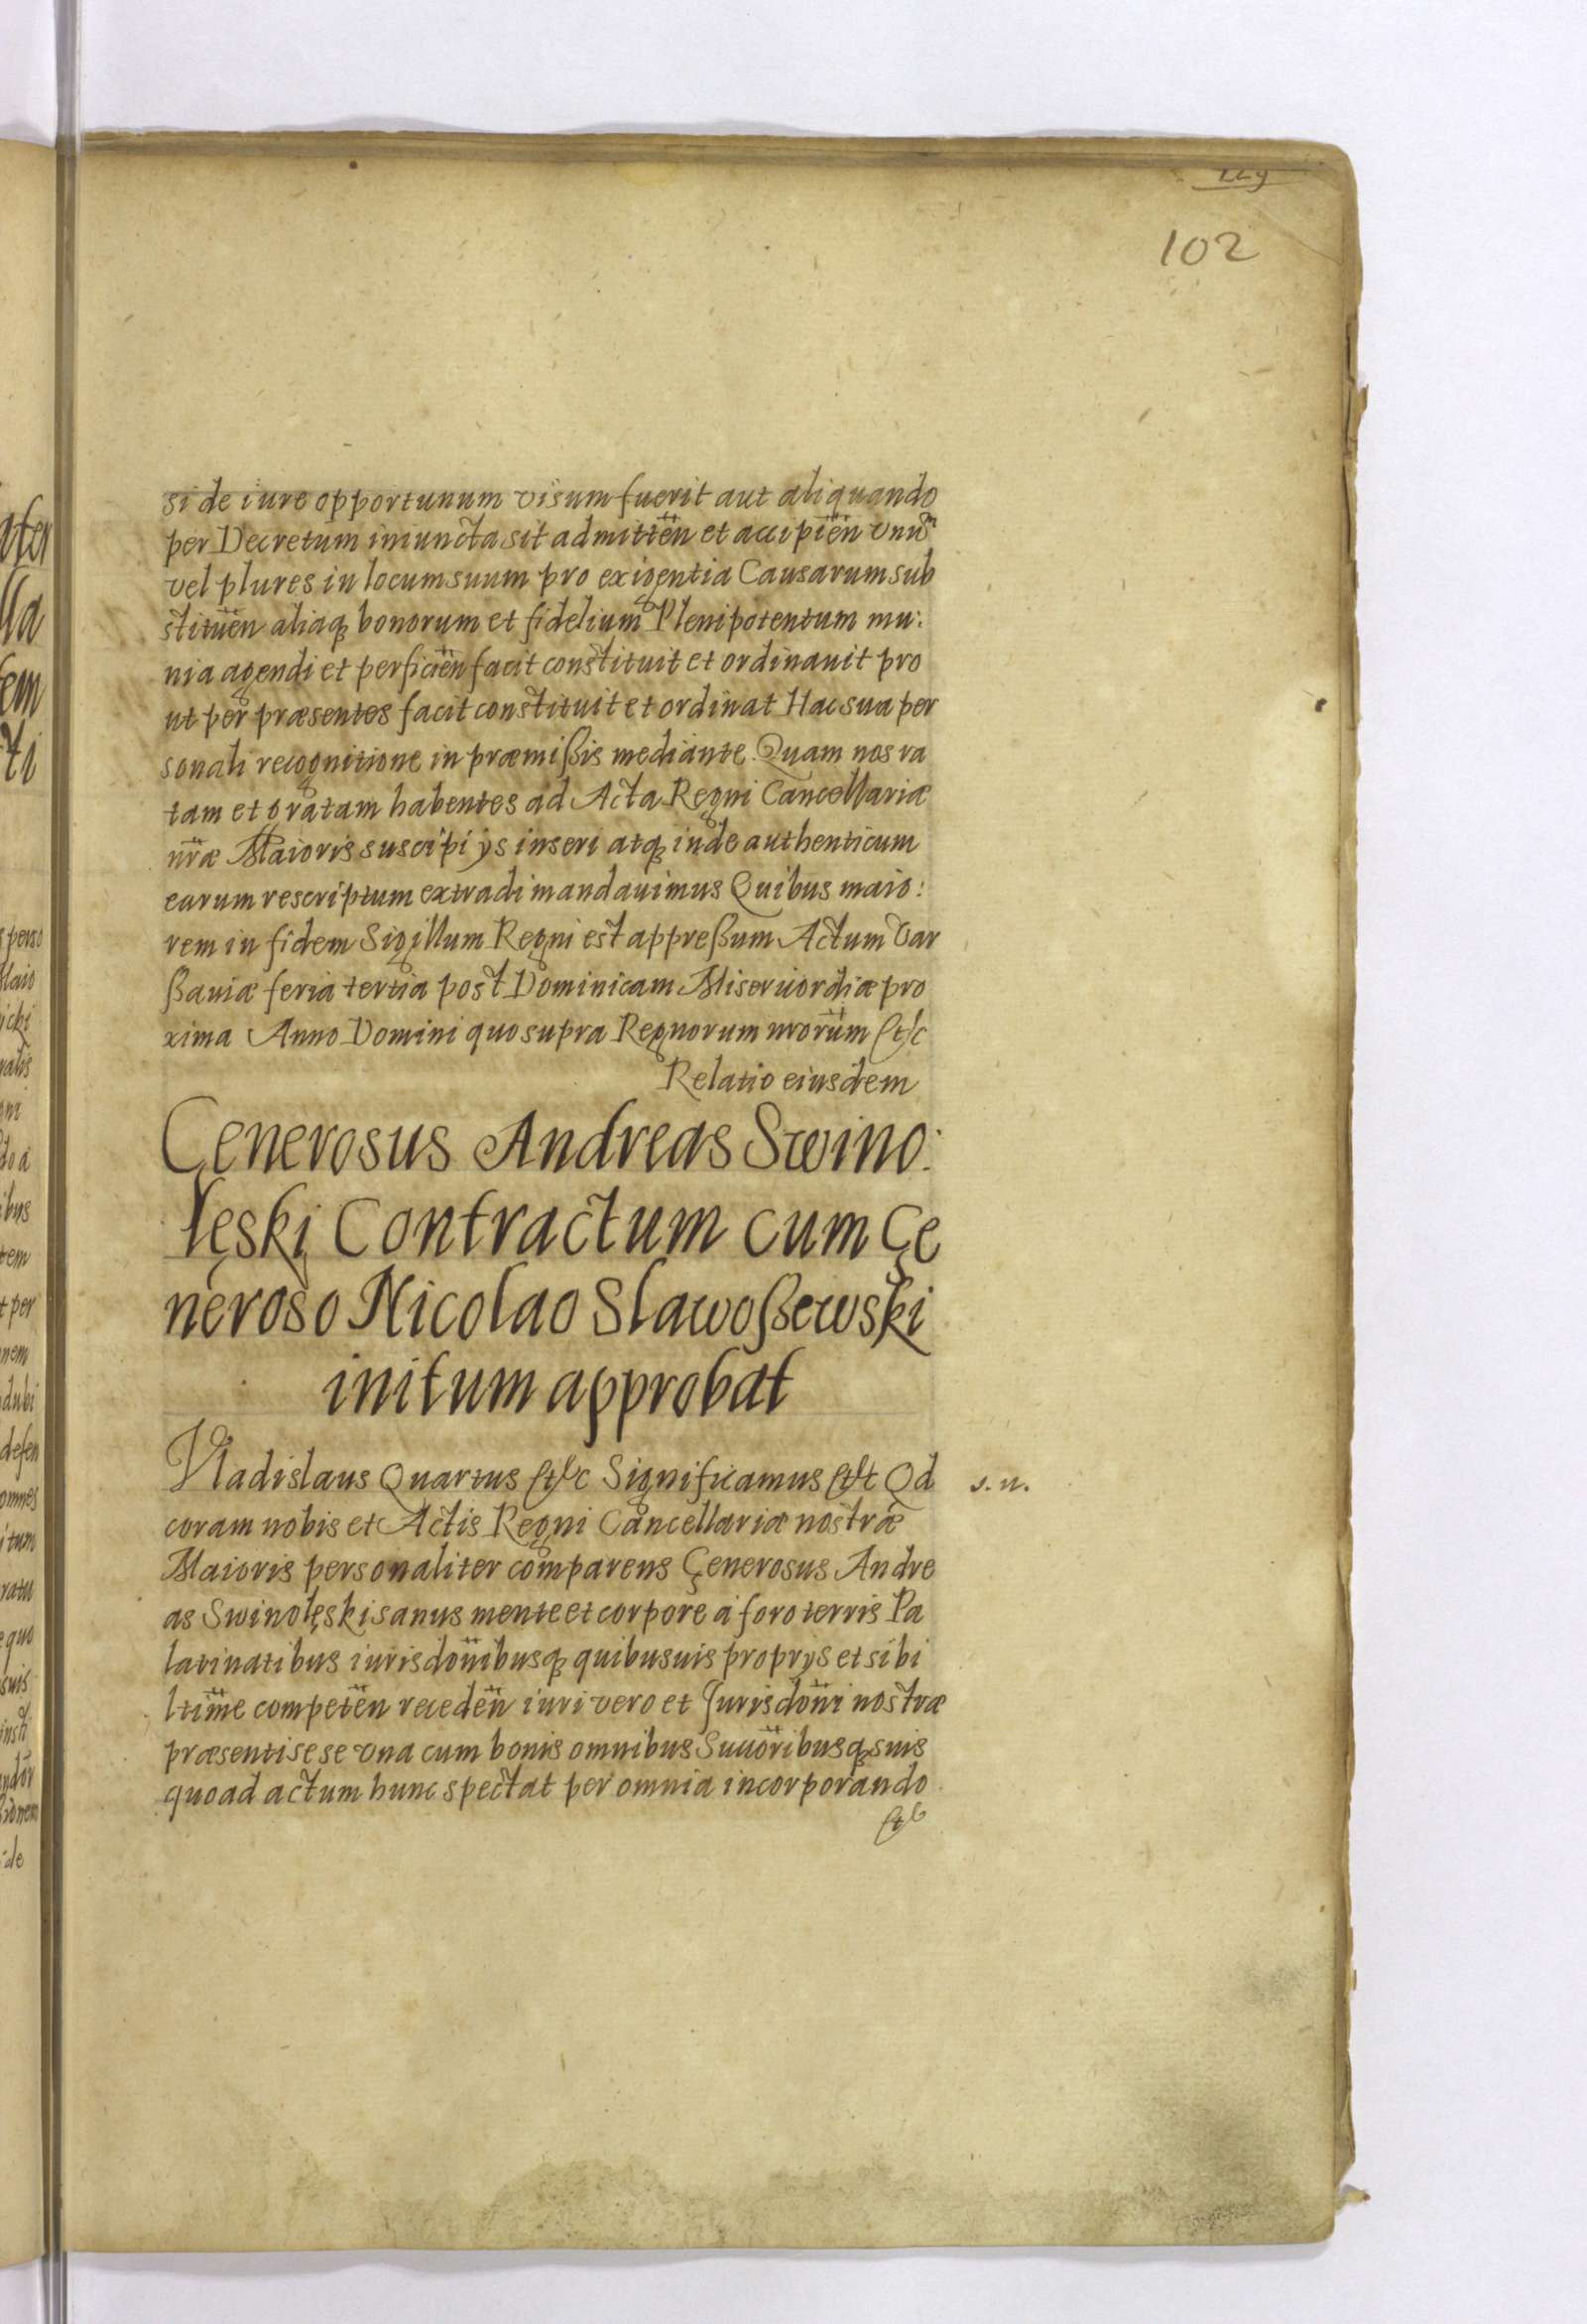 102
si de iure opportunum visum fuerit aut aliquando
per Decretum iniuncta sit admitten̈ et accipien̈ vnu͞m
vel plures in locum suum pro exigentia Causarum sub
stituen̈ aliaq bonorum et fidelium Plenipotentum mu:
nia agendi et perficien̈ facit constituit et ordinauit pro
ut per præsentes facit constituit et ordinat Hac sua per
sonali recognitione in præmißis mediante. Quam nos ra
tam et gratam habentes ad Acta Regni Cancellariæ
nr̈æ Maioris suscipi ijs inseri atq inde authenticum
earum rescriptum extradi mandauimus Quibus maio:
rem in fidem Sigillum Regni est appreßum Actum Var
ßauiæ feria tertia post Dominicam Misericordiæ pro
xima Anno Domini quo supra Regnorum nrorüm etc
Relatio eiusdem
Generosus Andreas Swino:
lęski Contractum cum Ge
neroso Nicolao Slawoßewski
initum approbat
Vladislaus Quartus etc Significamus etc Qd s. n.
coram nobis et Actis Regni Cancellariæ nostræ
Maioris personaliter comparens Generosus Andre
as Swinolęski sanus mente et corpore á foro terris Pa
latinatibus iurisdon̈ibusq quibusuis proprijs et sibi
ltim̈e competen̈ receden̈ iuri vero et Jurisdon̈i nostræ
præsenti sese vna cum bonis omnibus Suc̈oribusq suis
quo ad actum hunc spectat per omnia incorporando
etc